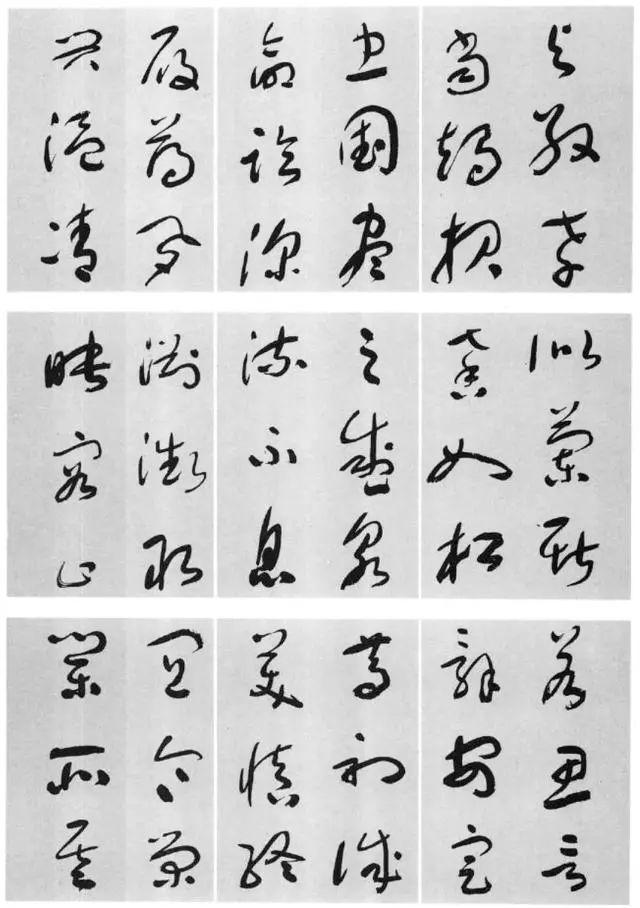 與敬孝
當竭力
忠則盡
命臨深
履薄夙
興溫凊
似蘭斯
馨如松
之盛川
流不息
淵澄取
映容止
若思言
辭安定
篤初誠
美慎終
宜令榮
業所基